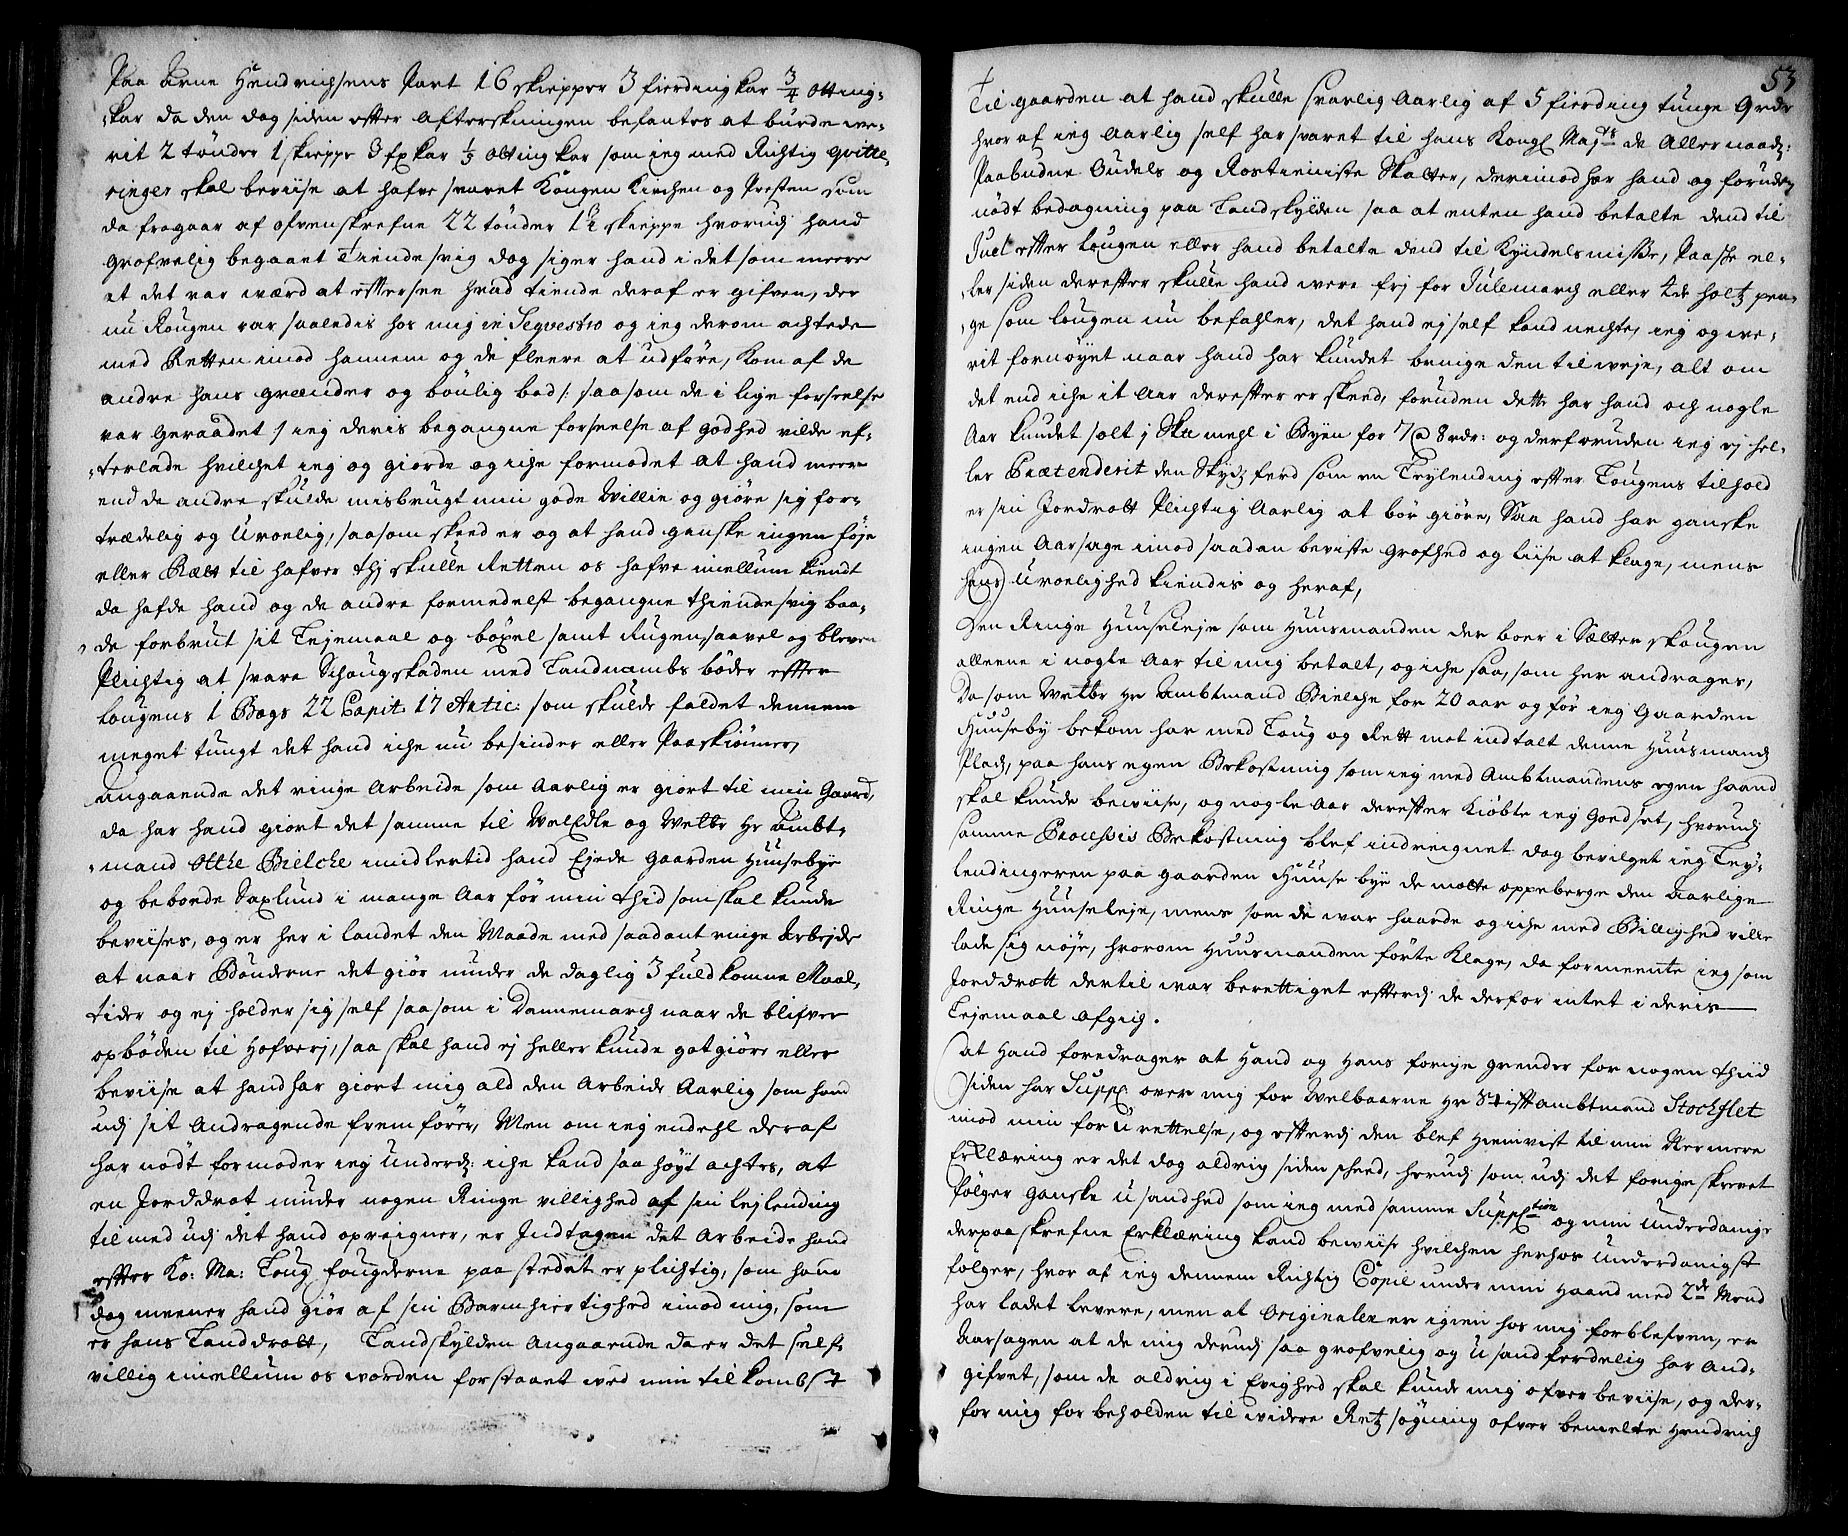 Paa Arne Hendrichsens Part 16 skiepper 3 fierding kar 3/4 otting-
-kar da den dog siden efter Afterskningen befantes at burde we-
rit 2 tønder 1 skieppe 3 fxkar 1/3 Otting kar som ieg med Rigtig qvitte-
ringer skal beviise at hafve svaret Kongen Kirchen og Presten som
da fragaar af ofvenskrefne 22 tønder skieppe hvorudj hand
grofvelig begaaet Tiende svig dog siger hand i det som meere
at det var wærd at eftersee hvad tiende deraf er gifven, der
nu Rougen var saaledis hos mig in Seqvestro og ieg derom achtede
med Retten imod hannem og de fleere at udføre, kom af de
andre hans grænder og bønlig bad /: saasom de i lige forseelse
var geraadet / ieg deris begangne forseelse af godhed vilde ef-
-terlade hvilchet ieg og giorde og iche formodet at hand meere
end de andre skulde misbrugt min gode Willie og giøre sig for-
trædelig og Uroelig, saasom skeed er og at hand ganske ingen føje
eller Rætt til hafver thj skulle Retten os hafve imellum kiendt
da hafde hand og de andre formedelst begangne thiende svig baa-
de forbrut sit Lejemaal og bøxel samt Rugen saavel og bleven
Plichtig at svare Schougskaden med Landnambs bøder efter
Lougens 1 Bogs 22 Capit: 17 Artic: som skulde faldet dennem
meget tungt det hand iche nu besinder eller Paaskiønner,
Angaaende det ringe Arbeide som Aarlig er giort til min Gaard,
da har hand giort det samme til WelEdle og Welbr Hr Ambt-
-mand Otthe Bielche imidlertid hand Ejede gaarden Huusebye
og beboede Saxlund i mange Aar før min thid som skal kunde
beviises, og er her i landet den Maade med saadant ringe Arbejde
at naar Bønderne det giør nyder de daglig 3 fuldkomne Maal-
tider og ej holder sig self saasom i Dannemarch naar de blifver
opbøden til Hofverj, saa skal hand ej heller kunde gotgiøre eller
beviise at hand har giort mig ald den Arbeide Aarlig som hand
udj sit Andragende fremfører, Men om ieg endehl deraf
har nødt formoder ieg Underd: iche kand saa høyt achtes, at
en Jorddrot nyder nogen Ringe villighed af sin lejlending
til med udj det hand opreigner, er Indtagen det Arbeide hand
efter Ko: Ma: Loug fougderne paa stedet er plichtig, som hand
dog meener hand giør af sin Barmhiertighed imod mig, som
er hans Landdrott, Landskylden Angaaende da er det self
villig imellum os worden forstaaet wed min tilkombst
53
Til gaarden at hand skulle svarlig Aarlig af 5 fierding tunge
hvor af ieg Aarlig self har svaret til hans Kongl Majts de Allernaad:
Paabudne Oudels og Rostieniste Skatter, derimod har hand og foruden
nødt bedagning paa Landskylden saa at enten hand betalte dend til
Juel efter Lougen eller hand betalte dend til Kyndelsmisse, Paaske el-
-ler siden derefter skulle hand were frj for Julemarch eller 4de holtz pen-
-ge som Lougen nu befahler, det hand ej self kand nechte, ieg og we-
rit fornøyet naar hand har kundet bringe den til weje, alt om
det end iche it Aar derefter er skeed, foruden dette har hand och nogle
Aar kundet solt j Sku mehl i Byen for 7 a 8 rdr: og derforuden ieg ej hel-
ler Prætenderit den Skydz ferd som en Lejlending efter Lougens tilhold
er sin Jordrott Plichtig Aarlig at bør giøre, Saa hand har ganske
ingen Aarsage imod saadan beviste grofhed og liise at klage, mens
hans Uroelighed kiendis og heraf,
Den Ringe Huuseleje som Huusmanden der boer i Sætterskougen
alleene i nogle Aar til mig betalt, og iche saa, som her andrages,
Da som Welbr Hr Ambtmand Bielche for 20 aar og før ieg Gaarden
Huuseby bekom har med Loug og Rett mot indtalt denne Huusmands
Plads, paa hans egen Bekostning som ieg med Ambtmandens egen haand
skal kunde beviise, og nogle Aar derefter Kiøbte ieg Godset, hvorudj
samme Processis Bekostning blef indreignet dog bevilget ieg Lej-
lendingeren paa gaarden Huusebye de motte oppeberge den Aarlige
Ringe Huuseleje, mens som de war haarde og iche med Billighed ville
lade sig nøje, hvorom Huusmanden førte Klage, da formeente ieg som
Jorddrott dertil war berettiget efterdj de derfor intet i deris
Lejemaal afgich.
At Hand foredrager at Hand og Hans forige grender for nogen thiid
siden har Suppl over mig for Welbaarne Hr Stiftambtmand Stochflet
mod min for Urettelse, og efterdj den blef Hiemvist til min Nermere
Erklæring er det dog aldrig siden scheed, herudj som udj det forige skrevet
følger ganske Usandhed som ieg med samme Supplication og min Underdanige
derpaa skrefne Erklæring kand bewiise hvilchen herhos Underdanigst
følger, hvor af ieg dennem Rigtig Copie under min Haand med 2de Mend
har ladet levere, men at Originalen er igien hos mig forblefven, er
Aarsagen at de mig derudj saa grofvelig og Usandferdelig har And-
gifvet, som de aldrig i Evighed skal kunde mig ofver beviise, og der-
for mig forbeholden til widere Retz søgning ofver bemelte Hendrich